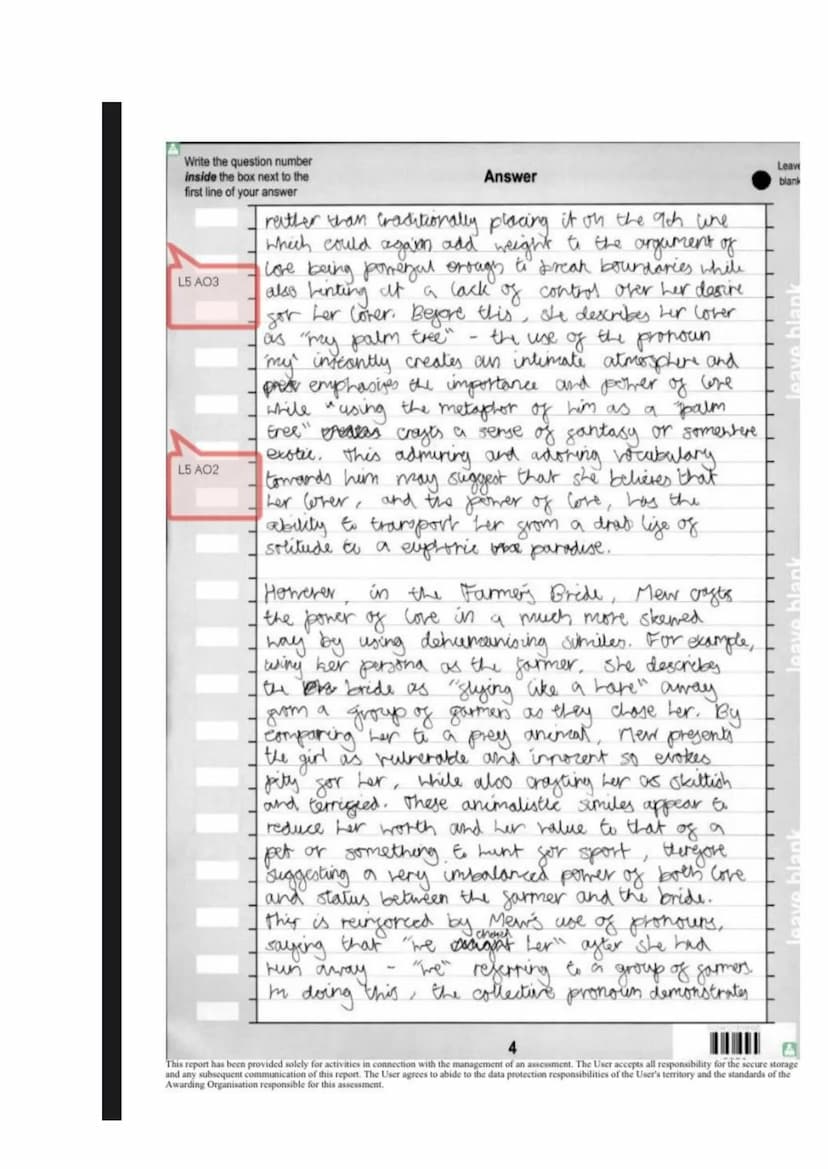 Write the question number
inside the box next to the
first line of your answer
Answer
Leave
blank
reither than traditionally placing it on the 9th line
which could again add weight to the argument of
love being powerful enough to break boundaries while
L5 AO3
also hinting at a lack of control over her desire
for her lover. Before this, she describes her lover
as "my palm tree" - the use of the pronoun
'my' instantly creates an intimate atmosphere and
emphasises the importance and power of love
while "using the metaphor of him as a "palm
tree" crafts a sense of fantasy or somewhere
exotic. This admiring and adoring vocabulary
L5 AO2
towards him may suggest that she believes that
her lover, and the power of love, has the
ability to transport her from a drab life of
solitude to a euphoric paradise.
However, in the Farmer's Bride, Mew crafts
the power of love in a much more skewed
way by using dehumanising similes. For example,
using her persona as the farmer, she describes
the bride as "flying like a hare" away
from a group of farmers as they chase her. By
comparing her to a prey animal, Mew presents
the girl as vulnerable and innocent so evokes
pity for her, while also crafting her as skittish
and terrified. These animalistic similes appear to
reduce her worth and her value to that of a
pet or something to hunt for sport, therefore
suggesting a very imbalanced power of both love
and status between the farmer and the bride.
This is reinforced by Mew's use of pronouns,
saying that "we chased her" after she had
run away - "we" referring to a group of farmers.
In doing this, the collective pronoun demonstrates
leave blank
leave blank
leave blank
4
This report has been provided solely for activities in connection with the management of an assessment. The User accepts all responsibility for the secure storage
and any subsequent communication of this report. The User agrees to abide to the data protection responsibilities of the User's territory and the standards of the
Awarding Organisation responsible for this assessment.